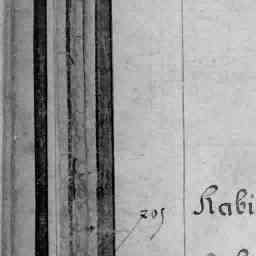 205 Rabi